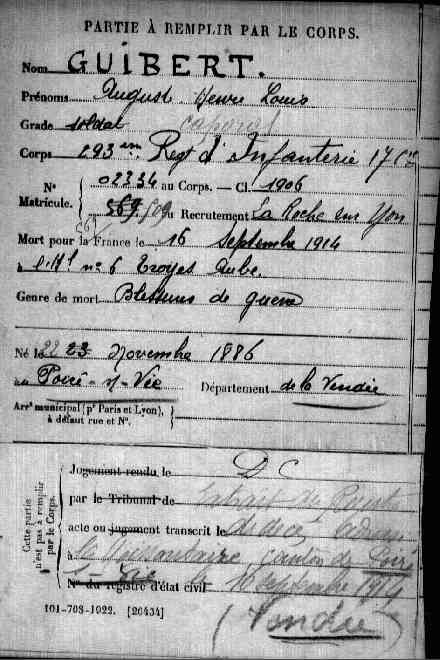 PARTIE À REMPLIR PAR LE CORPS.
Nom GUIBERT.
Prénoms Auguste Henri Louis
Grade soldat caporal
Corps 293em Regt d'Infanterie 17 Cie
N° 02334 au Corps. — Cl. 1906
Matricule. 569 509 au Recrutement La Roche sur Yon
Mort pour la France le 16 Septembre 1914
à l'Hl n° 6 Troyes Aube.
Genre de mort Blessures de guerre
Né le 22 23 Novembre 1886
à Poiré-s/-Vie Département de la Vendée
Arrt municipal (pr Paris et Lyon),
à défaut rue et N°.
Cette partie
n'est pas à remplir
par le Corps.
Jugement rendu le D C
par le Tribunal de Extrait du
acte ou jugement transcrit le de décès
à canton de Poiré
N° du registre d'état civil 16 septembre 1914
101-708-1922. [26434]
(Vendée)